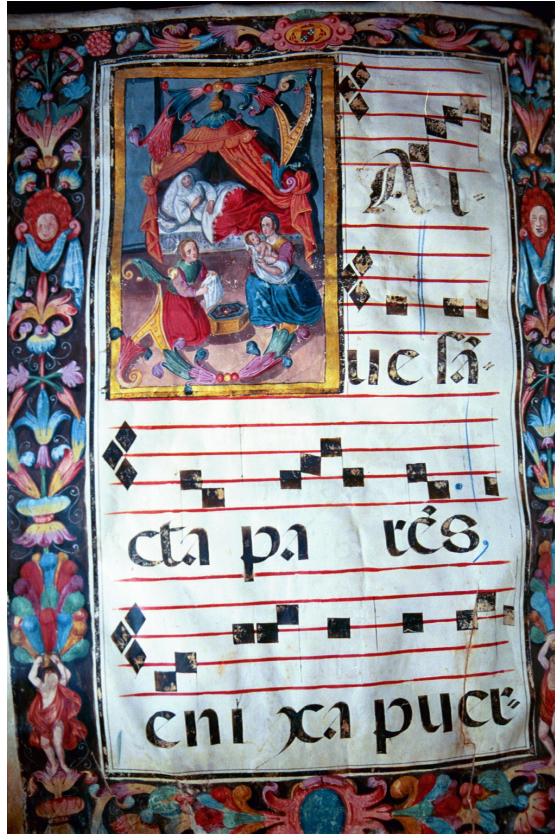 SAl=
ue sã=
cta pa rẽs,
eni xa puer=